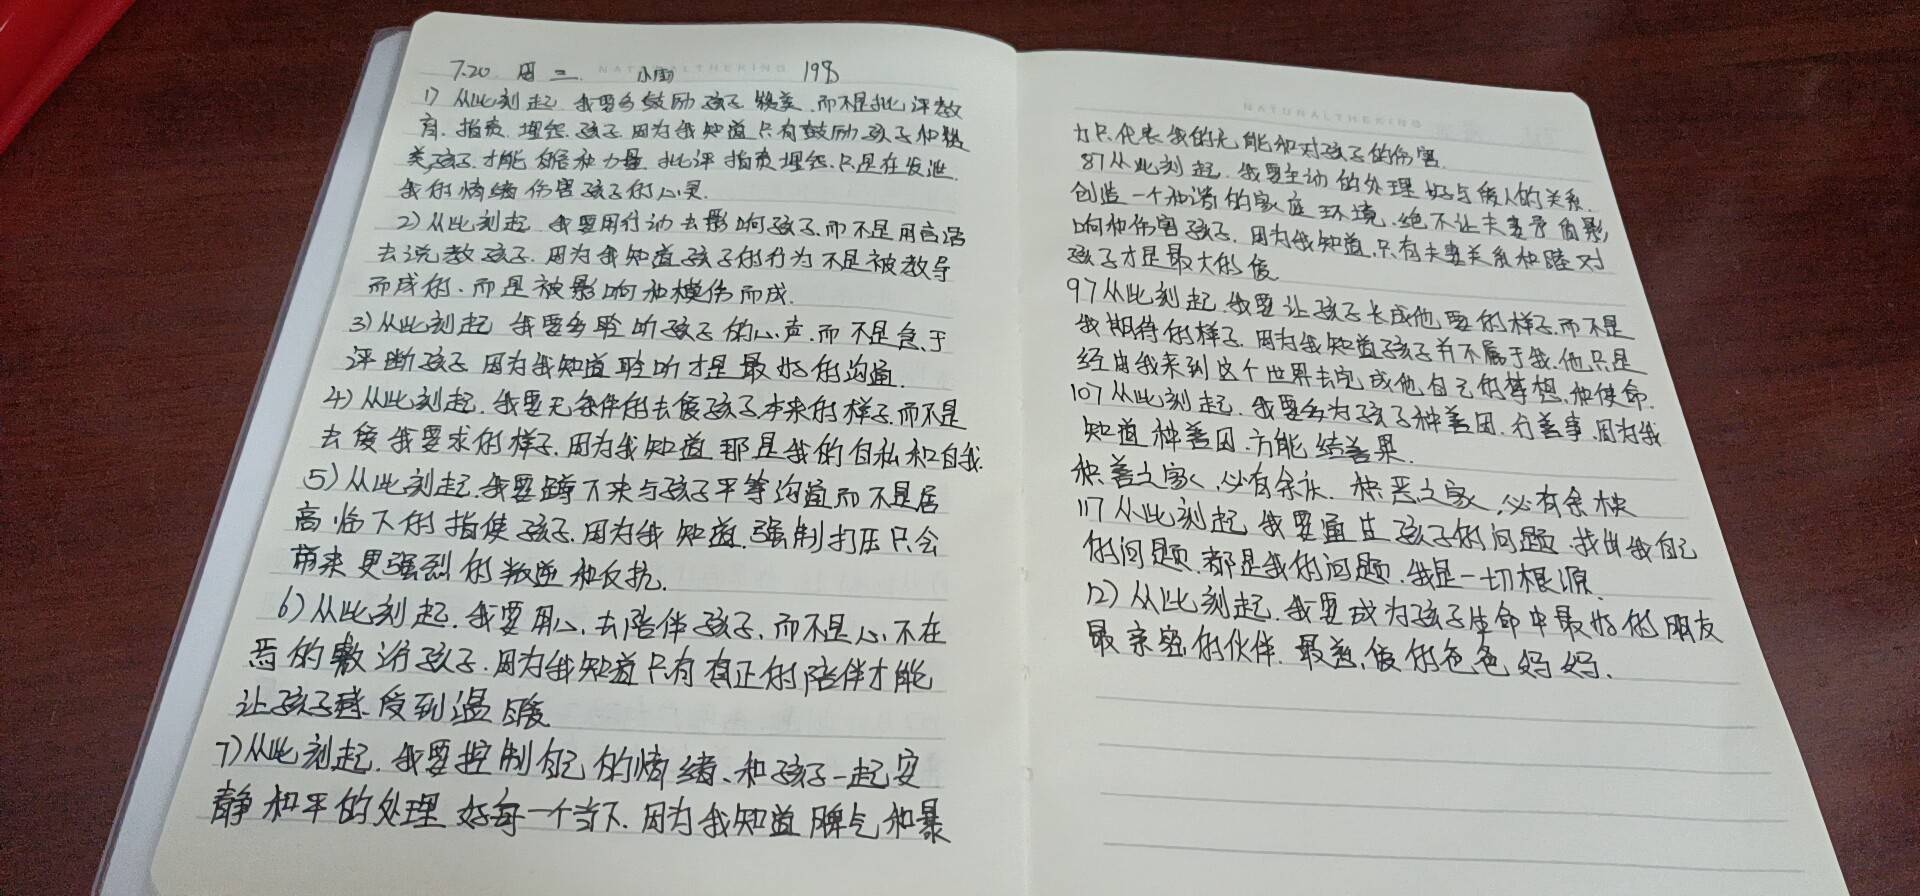 7.20 周二 小雨 198
NATURALTHEKING
1) 从此刻起 我要多鼓励孩子 赞美.而不是批评教
育.指责.埋怨.孩子.因为我知道只有鼓励孩子和赞
美孩子.才能 和力量.批评指责埋怨.只是在发泄.
我的情绪伤害孩子的心灵.
2) 从此刻起.我要用行动去影响孩子.而不是用言语
去说教孩子.因为我知道孩子的行为不是被教导
而成的.而是被影响和模仿而成.
3) 从此刻起 我要多聆听孩子的心声.而不是急于
评断孩子.因为我知道聆听才是最好的沟通.
4) 从此刻起.我要无条件的去爱孩子本来的样子.而不是
去爱我要求的样子.因为我知道 那是我的自私和自我.
5) 从此刻起.我要蹲下来与孩子平等沟通而不是居
高临下的指使孩子.因为我知道.强制打压只会
带来更强烈的叛逆和反抗.
6) 从此刻起.我要用心去陪伴孩子.而不是心不在
焉的敷衍孩子.因为我知道只有真正的陪伴才能
让孩子感受到温暖
7) 从此刻起.我要控制自己的情绪、和孩子一起安
静和平的处理好每一个当下.因为我知道脾气和暴
NATURALTHEKING
力只代表我的无能和对孩子的伤害.
8) 从此刻起.我要主动的处理好与爱人的关系.
创造一个和谐的家庭环境.绝不让夫妻矛盾影
响和伤害孩子.因为我知道.只有夫妻关系和睦对
孩子才是最大的爱
9) 从此刻起.我要让孩子长成他要的样子.而不是
我期待的样子.因为我知道孩子并不属于我.他只是
经由我来到这个世界去完成他自己的梦想.和使命.
10) 从此刻起.我要多为孩子种善因.行善事.因为我
知道种善因.方能结善果.
积善之家,必有余庆.积恶之家,必有余殃
11) 从此刻起 我要通过孩子的问题.找出我自己
的问题.都是我的问题.我是一切根源.
12) 从此刻起.我要成为孩子生命中最好的朋友
最亲密的伙伴.最慈爱的爸爸妈妈.